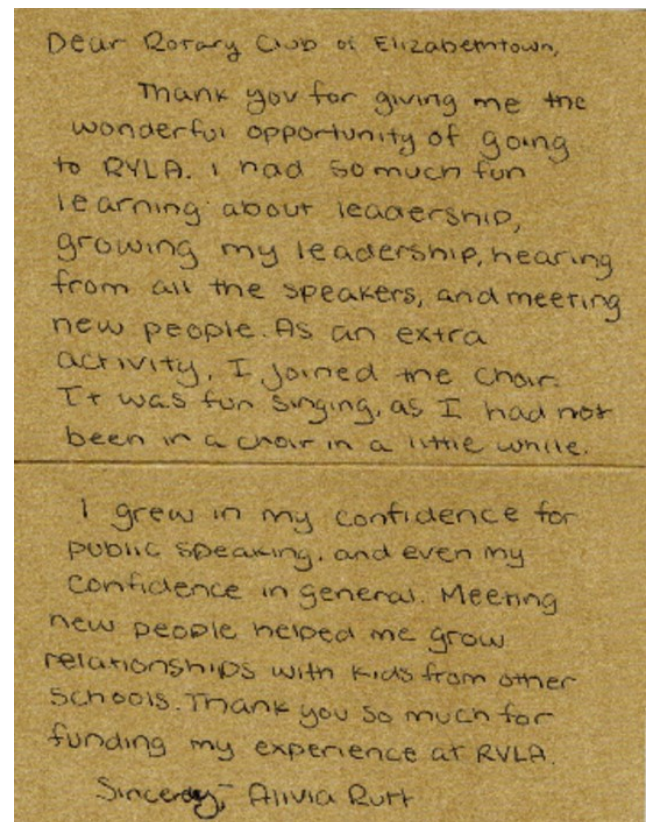 Dear Rotary Club of Elizabethtown,
Thank you for giving me the
wonderful opportunity of going
to RYLA. I had so much fun
learning about leadership,
growing my leadership, hearing
from all the speakers, and meeting
new people. As an extra
activity, I joined the choir.
It was fun singing, as I had not
been in a choir in a little while.
I grew in my confidence for
public speaking, and even my
confidence in general. Meeting
new people helped me grow
relationships with kids from other
schools. Thank you so much for
funding my experience at RYLA.
Sincerely, Alivia Rutt